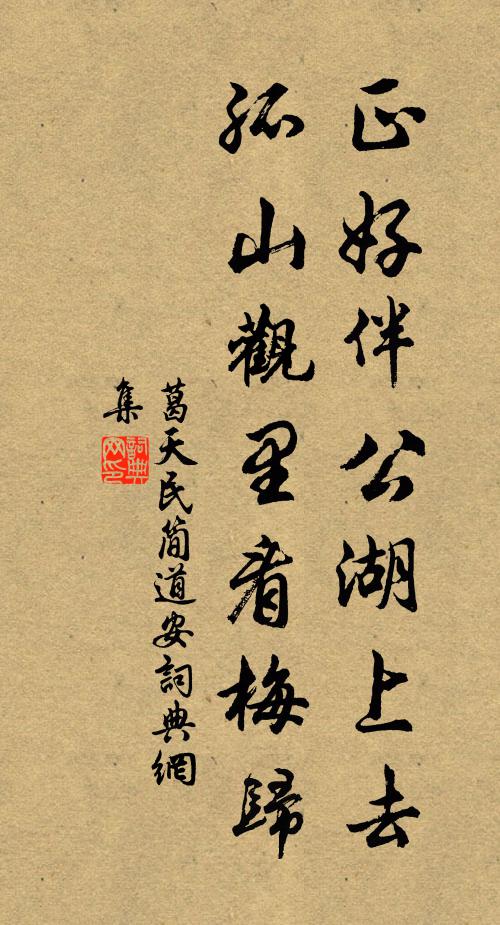 正好伴公湖上去
孤山觀里看梅歸
葛天民簡道安詞典網
集
詞典
网印